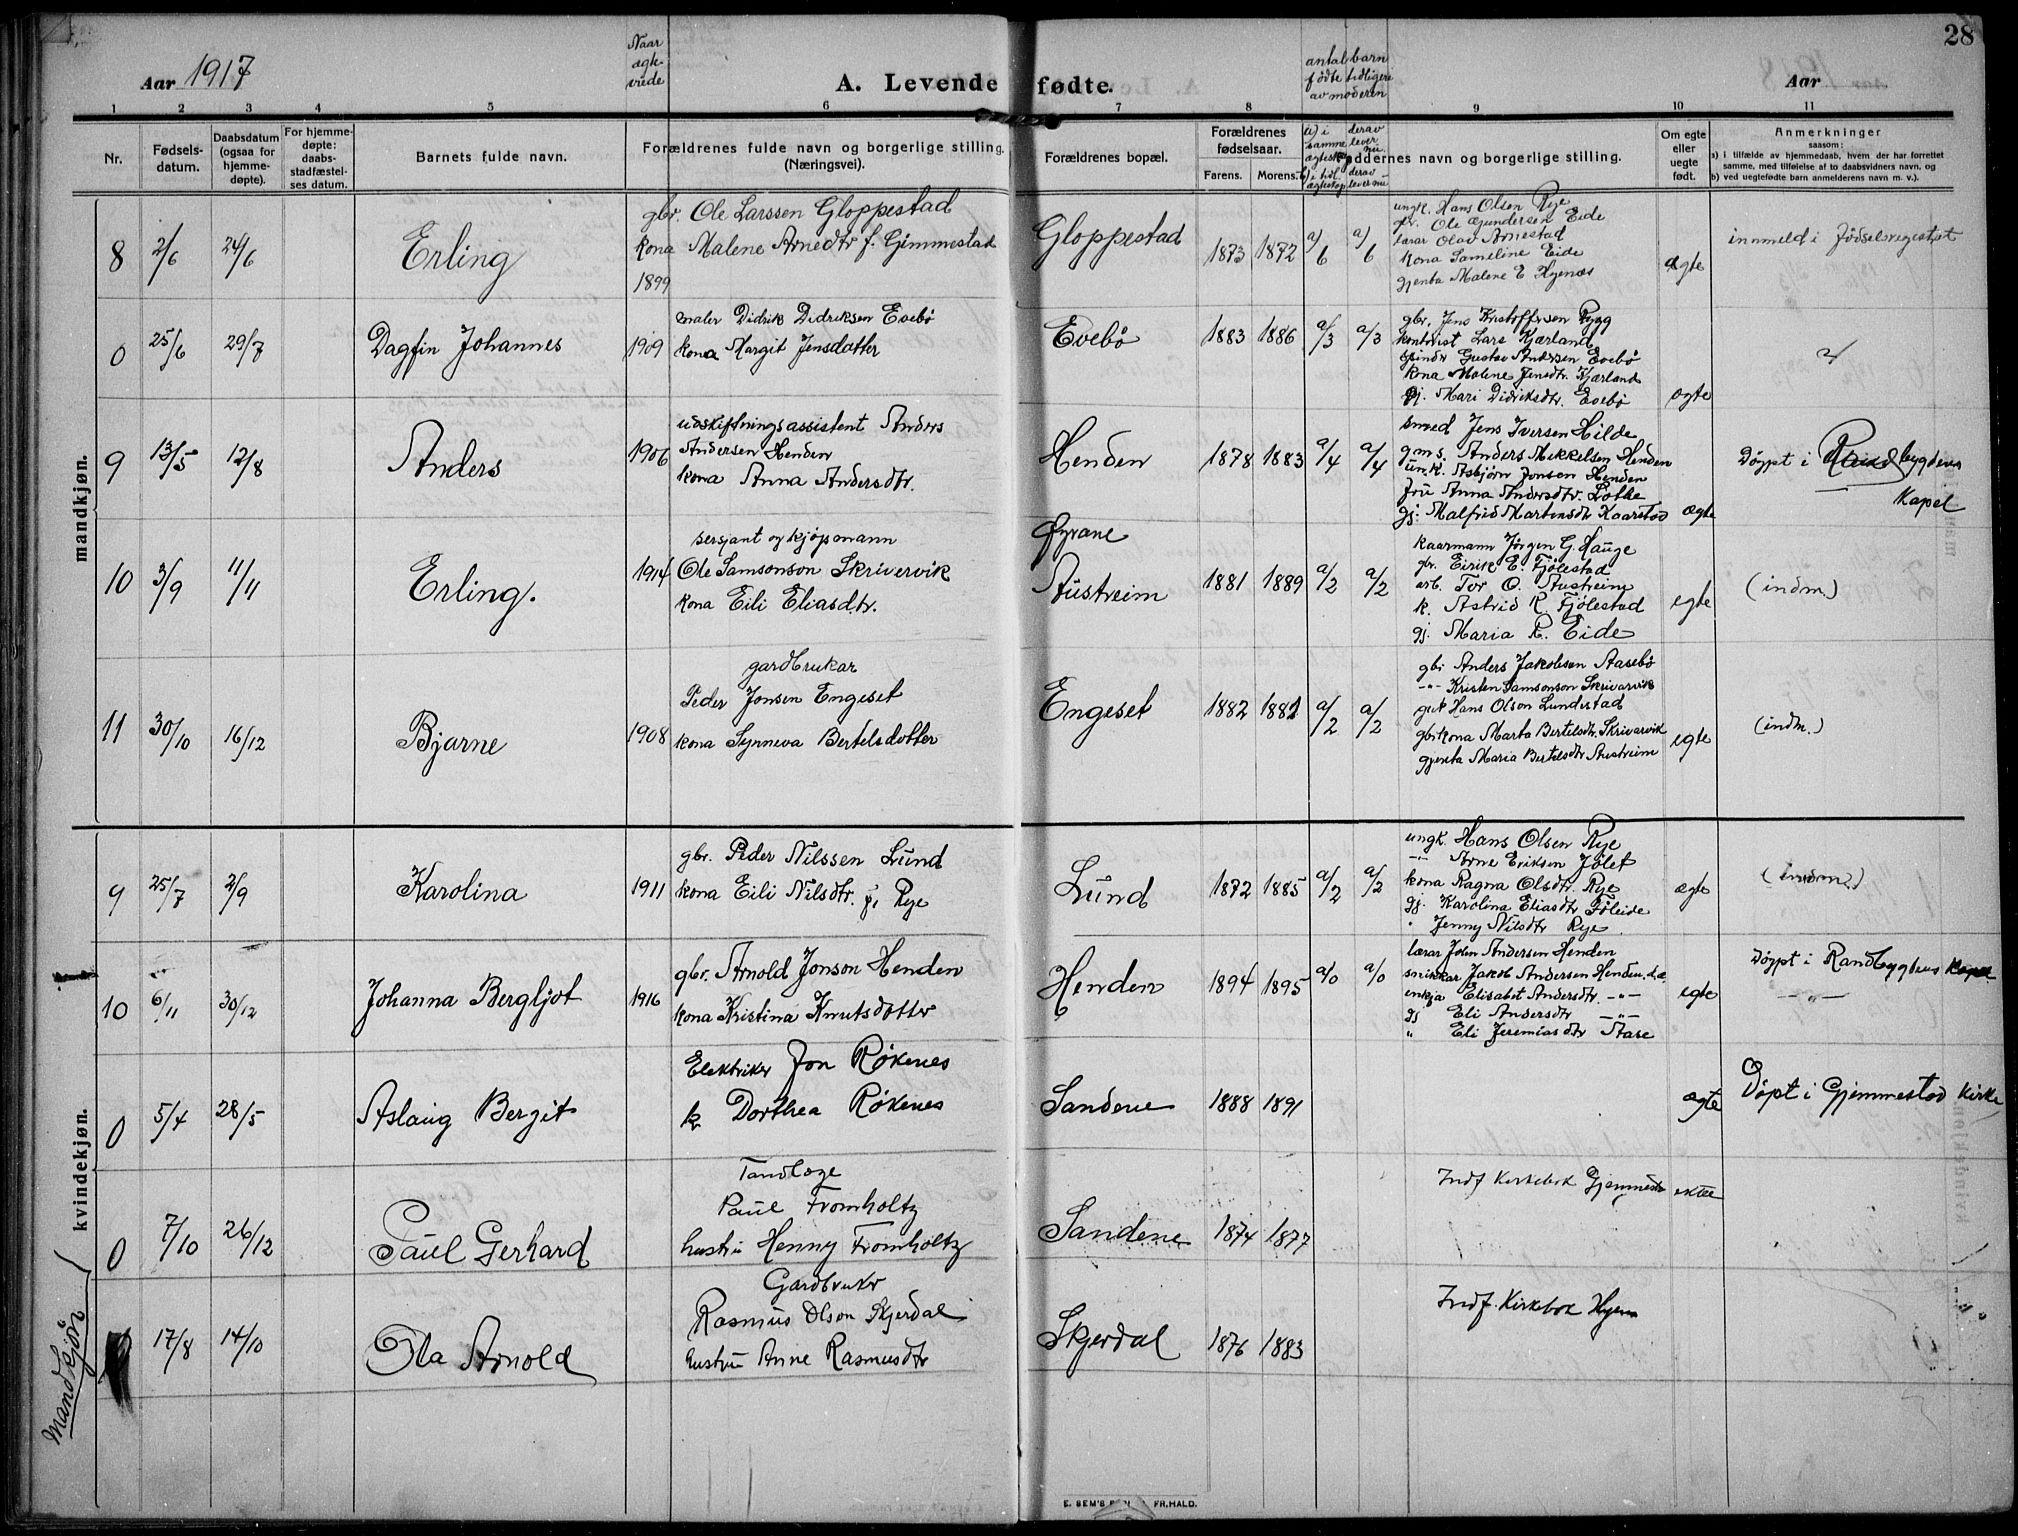 28
Aar 1917
Naar
egte-
viede
A. Levende fødte.
antal barn
fødte tidligere
av moderen
Aar
1 2 3 4 5 6 7 8 9 10 11
Nr.
Fødsels-
datum.
Daabsdatum
(ogsaa for
hjemme-
døpte).
For hjemme-
døpte:
daabs-
stadfæstel-
ses datum.
Barnets fulde navn.
Forældrenes fulde navn og borgerlige stilling.
(Næringsvei).
Forældrenes bopæl.
Forældrenes
fødselsaar.
Farens. Morens.
a) i
samme
derav
lever
nu
b) i tidl.
derav
lever nu
Faddernes navn og borgerlige stilling.
Om egte
eller
uegte
født.
Anmerkninger
saasom:
a) i tilfælde av hjemmedaab, hvem der har forrettet
samme, med tilføielse af to daabsvidners navn, og
b) ved uegtefødte barn anmelderens navn m. v.).
mandkjøn.
8 2/6 24/6 Erling
gbr. Ole Larssen Gloppestad
kona Malene Arnedtr f. Gimmestad
1899
Gloppestad 1873 1872 a/6 a/6
ungk. Hans Olsen Rye
gbr. Ole Gundersen Eide
lærar Olav Arnestad
kona Sameline Eide
gjenta Malene E Hyenæs
egte
innmeld i
0 25/6 29/7 Dagfin Johannes 1909
maler Didrik Didriksen Evebø
kona Margit Jensdotter
Evebø 1883 1886 a/3 a/3
gbr. Jens Kristoffersen Rygg
Lars Kjærland
Gustav Andersen Evebø
kona Malene Jensdtr. Kjærland
gj. Mari Didriksdtr. Evebø
egte
9 13/5 12/8 Anders 1906
udskiftningsassistent Anders
Andersen Henden
kona Anna Andersdtr.
Henden 1878 1883 a/4 a/4
smed Jens Iversen Hilde
gms. Anders Mikkelsen Henden
unk. Asbjörn Jonsen Henden
fru Anna Andersdtr. Lothe
gj. Malfrid Martensdtr Kaarstad
ægte
Döypt i Randbygdens
Kapel
10 3/9 11/11 Erling. 1914
sersjant og kjøpmann
Ole Samsonson Skrivervik
kona Eili Eliasdtr.
Øyrane
Austreim 1881 1889 a/2 a/2
kaarmann Jørgen G. Hauge
gbr. Eirik E. Fjölestad
arb. Tor O. Austreim
k. Astrid R. Fjölestad
gj. Maria R. Eide
egte
(indm.)
11 30/10 16/12 Bjarne 1908
gardbrukar
Peder Jonsen Engeset
kona Synneva Bertelsdotter
Engeset 1882 1881 a/2 a/2
gbr Anders Jakobsen Aasebö
-"- Kristen Samsonson Skrivarvik
gut Hans Olson Lundestad
gbrkona Marta Bertelsdtr. Skrivarvik
gjenta Maria Bertelsdtr Austreim
egte
(indm.)
kvindekjøn.
9 25/7 2/9 Karolina 1911
gbr. Peder Nilssen Lund
kona Eili Nilsdtr. f. Rye
Lund 1872 1885 a/2 a/2
ungk. Hans Olsen Rye
-"- Arne Eriksen Jölet
kona Ragna Olsdtr. Rye
gj. Karolina Eliasdtr Föleide
" Jenny Nilsdtr Rye
ægte
(indm.)
10 6/11 30/12 Johanna Bergljot 1916
gbr. Arnold Jonson Henden
kona Kristina Knutsdotter
Henden 1894 1895 a/0 a/0
lærar John Andersen Henden
snikkar Jakob Andersen Henden, d.æ.
enkja Elisabet Andersdtr. -"-
gj Eli Andersdtr -"-
" Eli Jeremiasdtr Aase
egte
Döypt i Randbygdens Kapel
-"-
0 5/4 28/5 Aslaug Bergit
Elektriker Jon Røkenes
k Dorthea Røkenes
Sandene 1888 1891
ægte
Döpt i Gjemmestad Kirke
0 7/10 26/12 Paul Gerhard
Tandlæge
Paul Fromholtz
hustru Henny Fromholtz
Sandene 1874 1877
Indf Kirkebok Gjemmestad
ektee
Mandkjøn
17/8 14/10 Ola Arnold
Gardbruker
Rasmus Olson Skjerdal
hustru Anne Rasmusdtr
Skjerdal 1876 1883
Indf. Kirkebok Hyen
E. SEM'S FR.HALD.